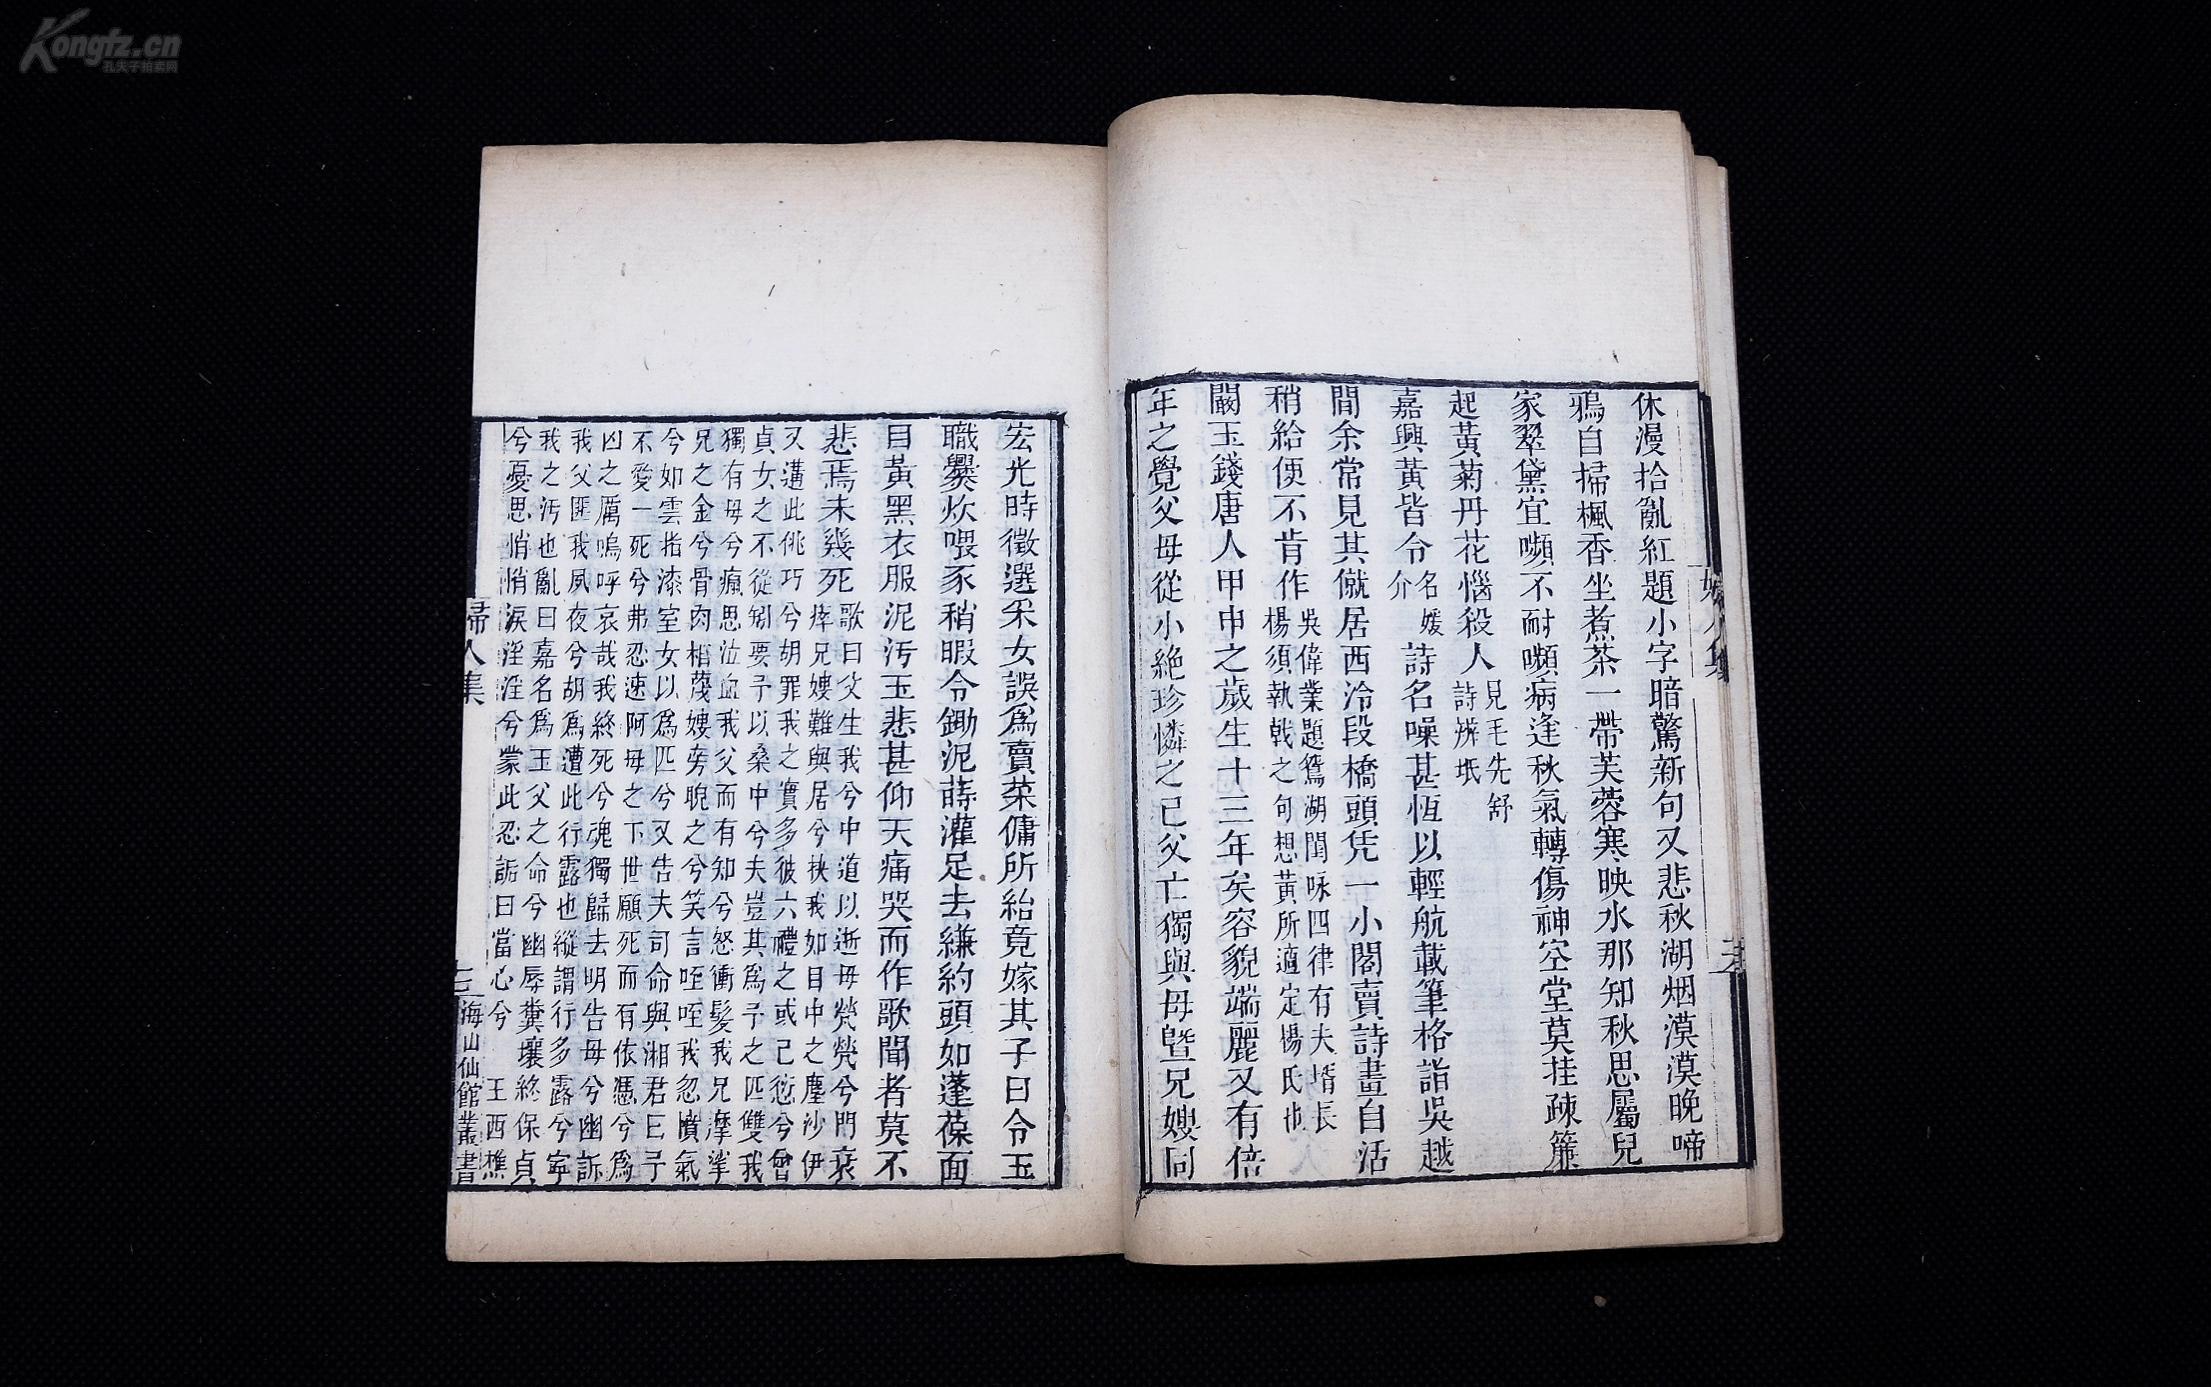 休漫拾亂紅題小字暗驚新句又悲秋湖烟漠漠晚啼
鴉自掃楓香坐煮茶一帶芙蓉寒映水那知秋思屬兒
家翠黛宜嚬不耐嚬病逢秋氣轉傷神空堂莫挂疎簾
起黃菊丹花惱殺人見毛先舒詩辨坻
嘉興黃皆令名媛介詩名噪甚恆以輕航載筆格詣吳越
間余常見其僦居西泠段橋頭凭一小閣賣詩畫自活
稍給便不肯作吳偉業題鴛湖閨咏四律有夫壻長楊須執戟之句想黃所適定楊氏也
闞玉錢唐人甲申之歲生十三年矣容貌端麗又有倍
年之覺父母從小絶珍憐之已父亡獨與母曁兄嫂同
婦人集
宏光時徵選采女誤爲賣菜傭所紿竟嫁其子曰令玉
職爨炊喂豕稍暇令鋤泥蒔灌足去縑約頭如蓬葆面
目黃黑衣服泥汚玉悲甚仰天痛哭而作歌聞者莫不
悲焉未幾死歌曰父生我兮中道以逝母煢煢兮門衰
瘁兄嫂難與居兮抶我如目中之塵沙伊
又遘此佻巧兮胡罪我之實多彼六禮之或已愆兮曾
貞女之不從矧要子以桑中兮夫豈其爲子之匹雙我
獨有母兮癙思泣血我父而有知兮怒衝髮我兄摩挲
兄之金兮骨肉相蔑嫂旁睨之兮笑言咥咥我忽憤氣
兮如雲指漆室女以爲匹兮又告夫司命與湘君曰予
不愛一死兮弗忍速阿母之下世願死而有依憑兮爲
凶之厲嗚呼哀哉我終死兮魂獨歸去明告母兮幽訴
我父匪我夙夜兮胡爲遭此行露也縱謂行多露兮寧
我之汚也亂曰嘉名爲玉父之命兮幽辱糞壤終保貞
兮憂思悄悄淚淫淫兮蒙此忍詬曰當心兮　王西樵
婦人集
海山仙館叢書
Kongfz.cn
孔夫子拍卖网